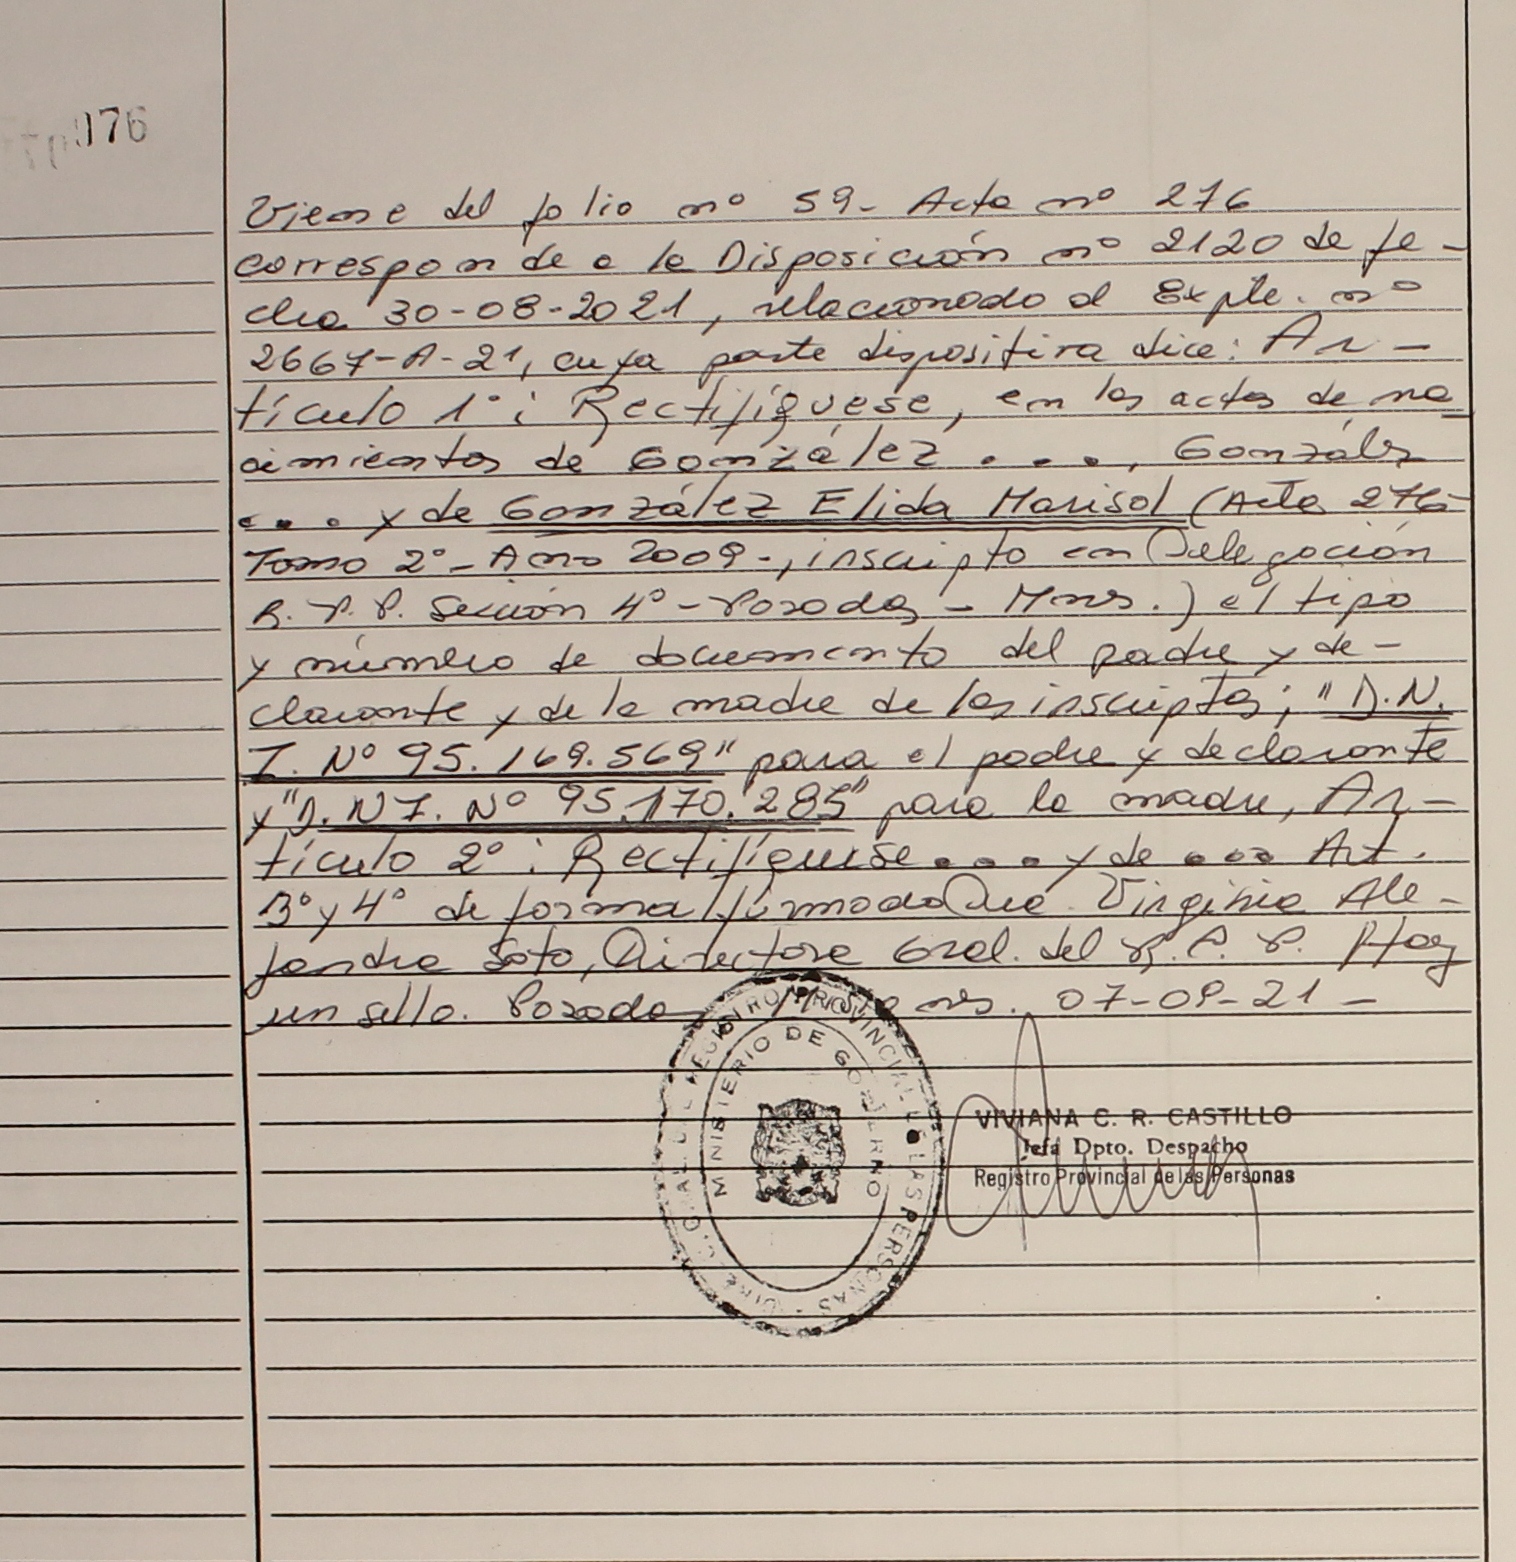 076
Viene del folio nº 59- Acta nº 276
corresponde a la Disposición nº 2120 de fe-
cha 30-08-2021, relacionado al Expte. nº
2667-A-21, cuya parte dispositiva dice: Ar-
tículo 1º: Rectifíquese, en las actas de na-
cimientos de González . . . , González
. . . y de González Elida Marisol (Acta 276-
Tomo 2º- Año 2009-, inscripto en Delegación
R. P. P. Sección 4º - Posadas - Mnes.) el tipo
y número de documento del padre y de-
clarante y de la madre de los inscriptos; "D.N.
I. Nº 95.169.569" para el padre y declarante
y "D.N I. Nº 95.170.285" para la madre, Ar-
tículo 2º: Rectifíquese . . . y de . . . Art.
3º y 4º de forma firmado Dra. Virginia Ale-
jandra Soto, Directora Gral. del R. P. P. Hay
un sello. Posadas, Misiones. 07-09-21-
REGISTRO PROVINCIAL DE LAS PERSONAS
MINISTERIO DE GOBIERNO
VIVIANA C. R. CASTILLO
Jefa Dpto. Despacho
Registro Provincial de las Personas